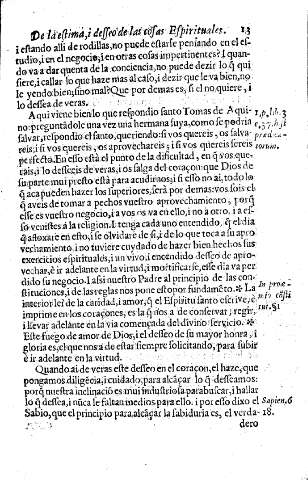 De la estima, i desseo de las cosas Espirituales. 13
i estando alli de rodillas, no puede estarse pensando en el es-
tudio, i en el negocio, i en otras cosas impertinentes? I quan-
do va a dar quenta de la conciencia, no puede dezir lo q̃ qui
siere, i callar lo que haze mas al caso, i dezir que le va bien, no
le yendo bien, sino mal? Que por demas es, si el no quiere, i
lo dessea de veras.
A qui viene bien lo que respondio santo Tomas de Aqui 1,p.lib.3
no: preguntãdole una vez una hermana suya. como se podria c,37.hist
salvar, respondio el santo, queriendo: si vos quereis, os salva-
reis; i si vos quereis, os aprovechareis; i si vos quereis sereis
perfecto. En esso està el punto de la dificultad, en q̃ vos que-
rais, i lo desseeis de veras, i os salga del coraçon: que Dios de
su parte mui presto està para acudirnos: i si esso no ai, todo lo
q̃ aca pueden hazer los superiores, serà por demas: vos sois el
q̃ aveis de tomar a pechos vuestro aprovechamiento, porq̃
esse es vuestro negocio, i a vos os va en ello, i no a otro, i a es-
so venistes à la religion. I tenga cada uno entendido, q̃ el dia
q̃ afloxare en esto, i se olvidare de si, i de lo que toca a su apro
vechamiento, i no tuviere cuydado de hazer bien hechos sus
exercicios espirituales, i un vivo, i encendido desseo de apro-
vechar, è ir adelante en la virtud, i mortificarse, esse dia va per
dido su negocio. I assi nuestro Padre al principio de las con-
stituciones, i de las reglas nos pone esto por fundamẽto. La In proe
interior lei de la caridad, i amor, q̃ el Espiritu santo escrive, è mio cõsti
imprime en los coraçones, es la q̃ nos a de conservar, regir, tui.§1
i llevar adelante en la via començada del divino servicio.
Este fuego de amor de Dios, i el desseo de su mayor honra, i
gloria es, el que nos a de estar siempre solicitando, para subir
è ir adelante en la virtud.
Quando ai de veras este desseo en el coraçon, el haze, que
pongamos diligẽcia, i cuidado, para alcãçar lo q̃ desseamos:
porq̃ nuestra inclinaciõ es mui industriosa para buscar, i hallar
lo q̃ dessea, i nũca le faltan medios para ello. i por esso dixo el Sapien,6
Sabio, que el principio para alcãçar la sabiduria es, el verda- 18.
dero